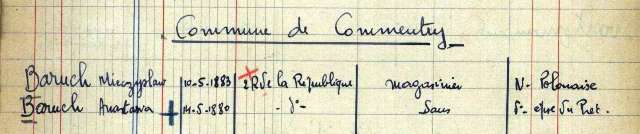 Commune de Commentry
Baruch Mieczyslaw 10-5-1883 2 R de la République magasinier N- Polonaise
Baruch Anastasia 14-5-1880 - d°- Sans d° épse du Pret.